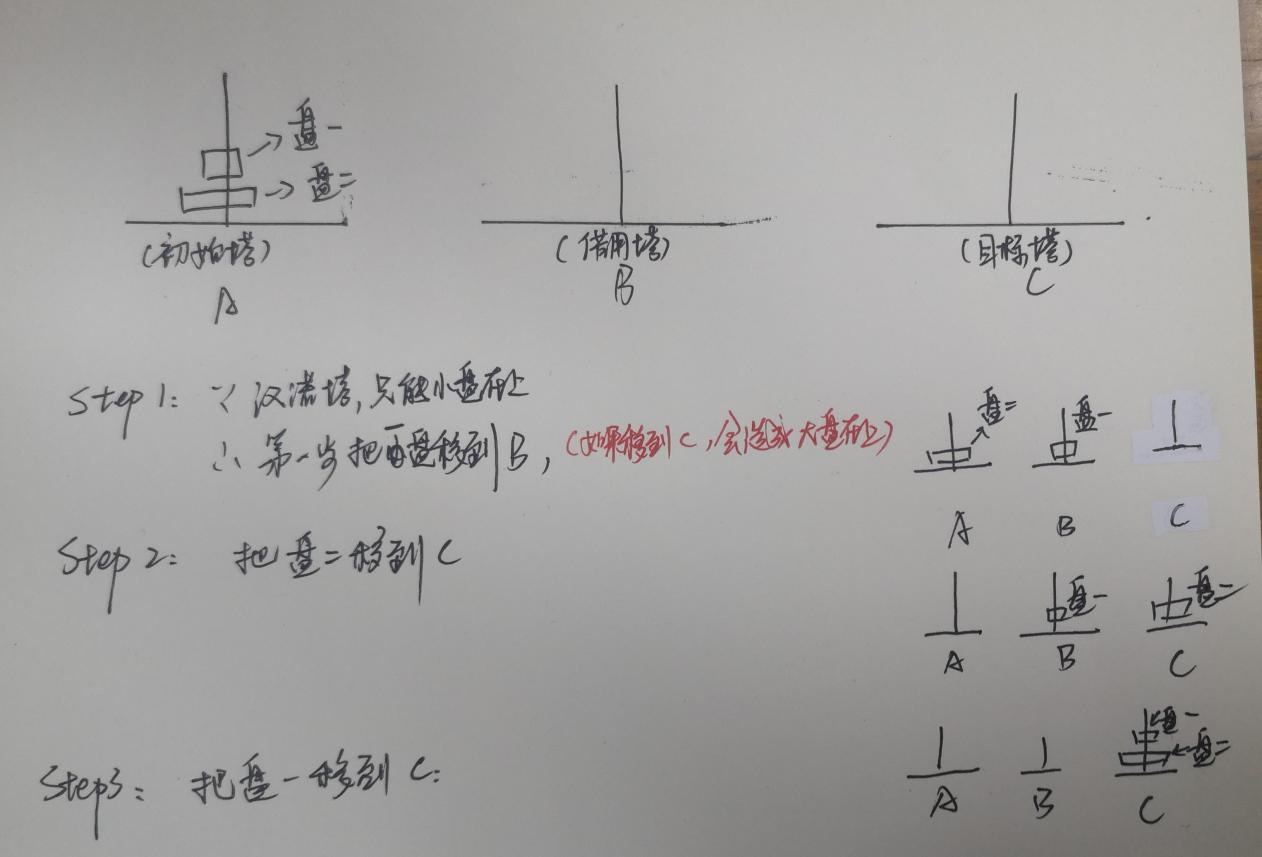 盘一
盘二
(初始塔)
(借用塔)
(目标塔)
A
B
C
Step 1: ∵ 汉诺塔,只能小盘在上
∴ 第一步把盘移到B,
(如果移到C,会造成大盘在上)
盘二
盘一
A
B
C
Step 2: 把盘二移到C
盘一
盘二
A
B
C
Step3: 把盘一移到C:
盘一
盘二
A
B
C